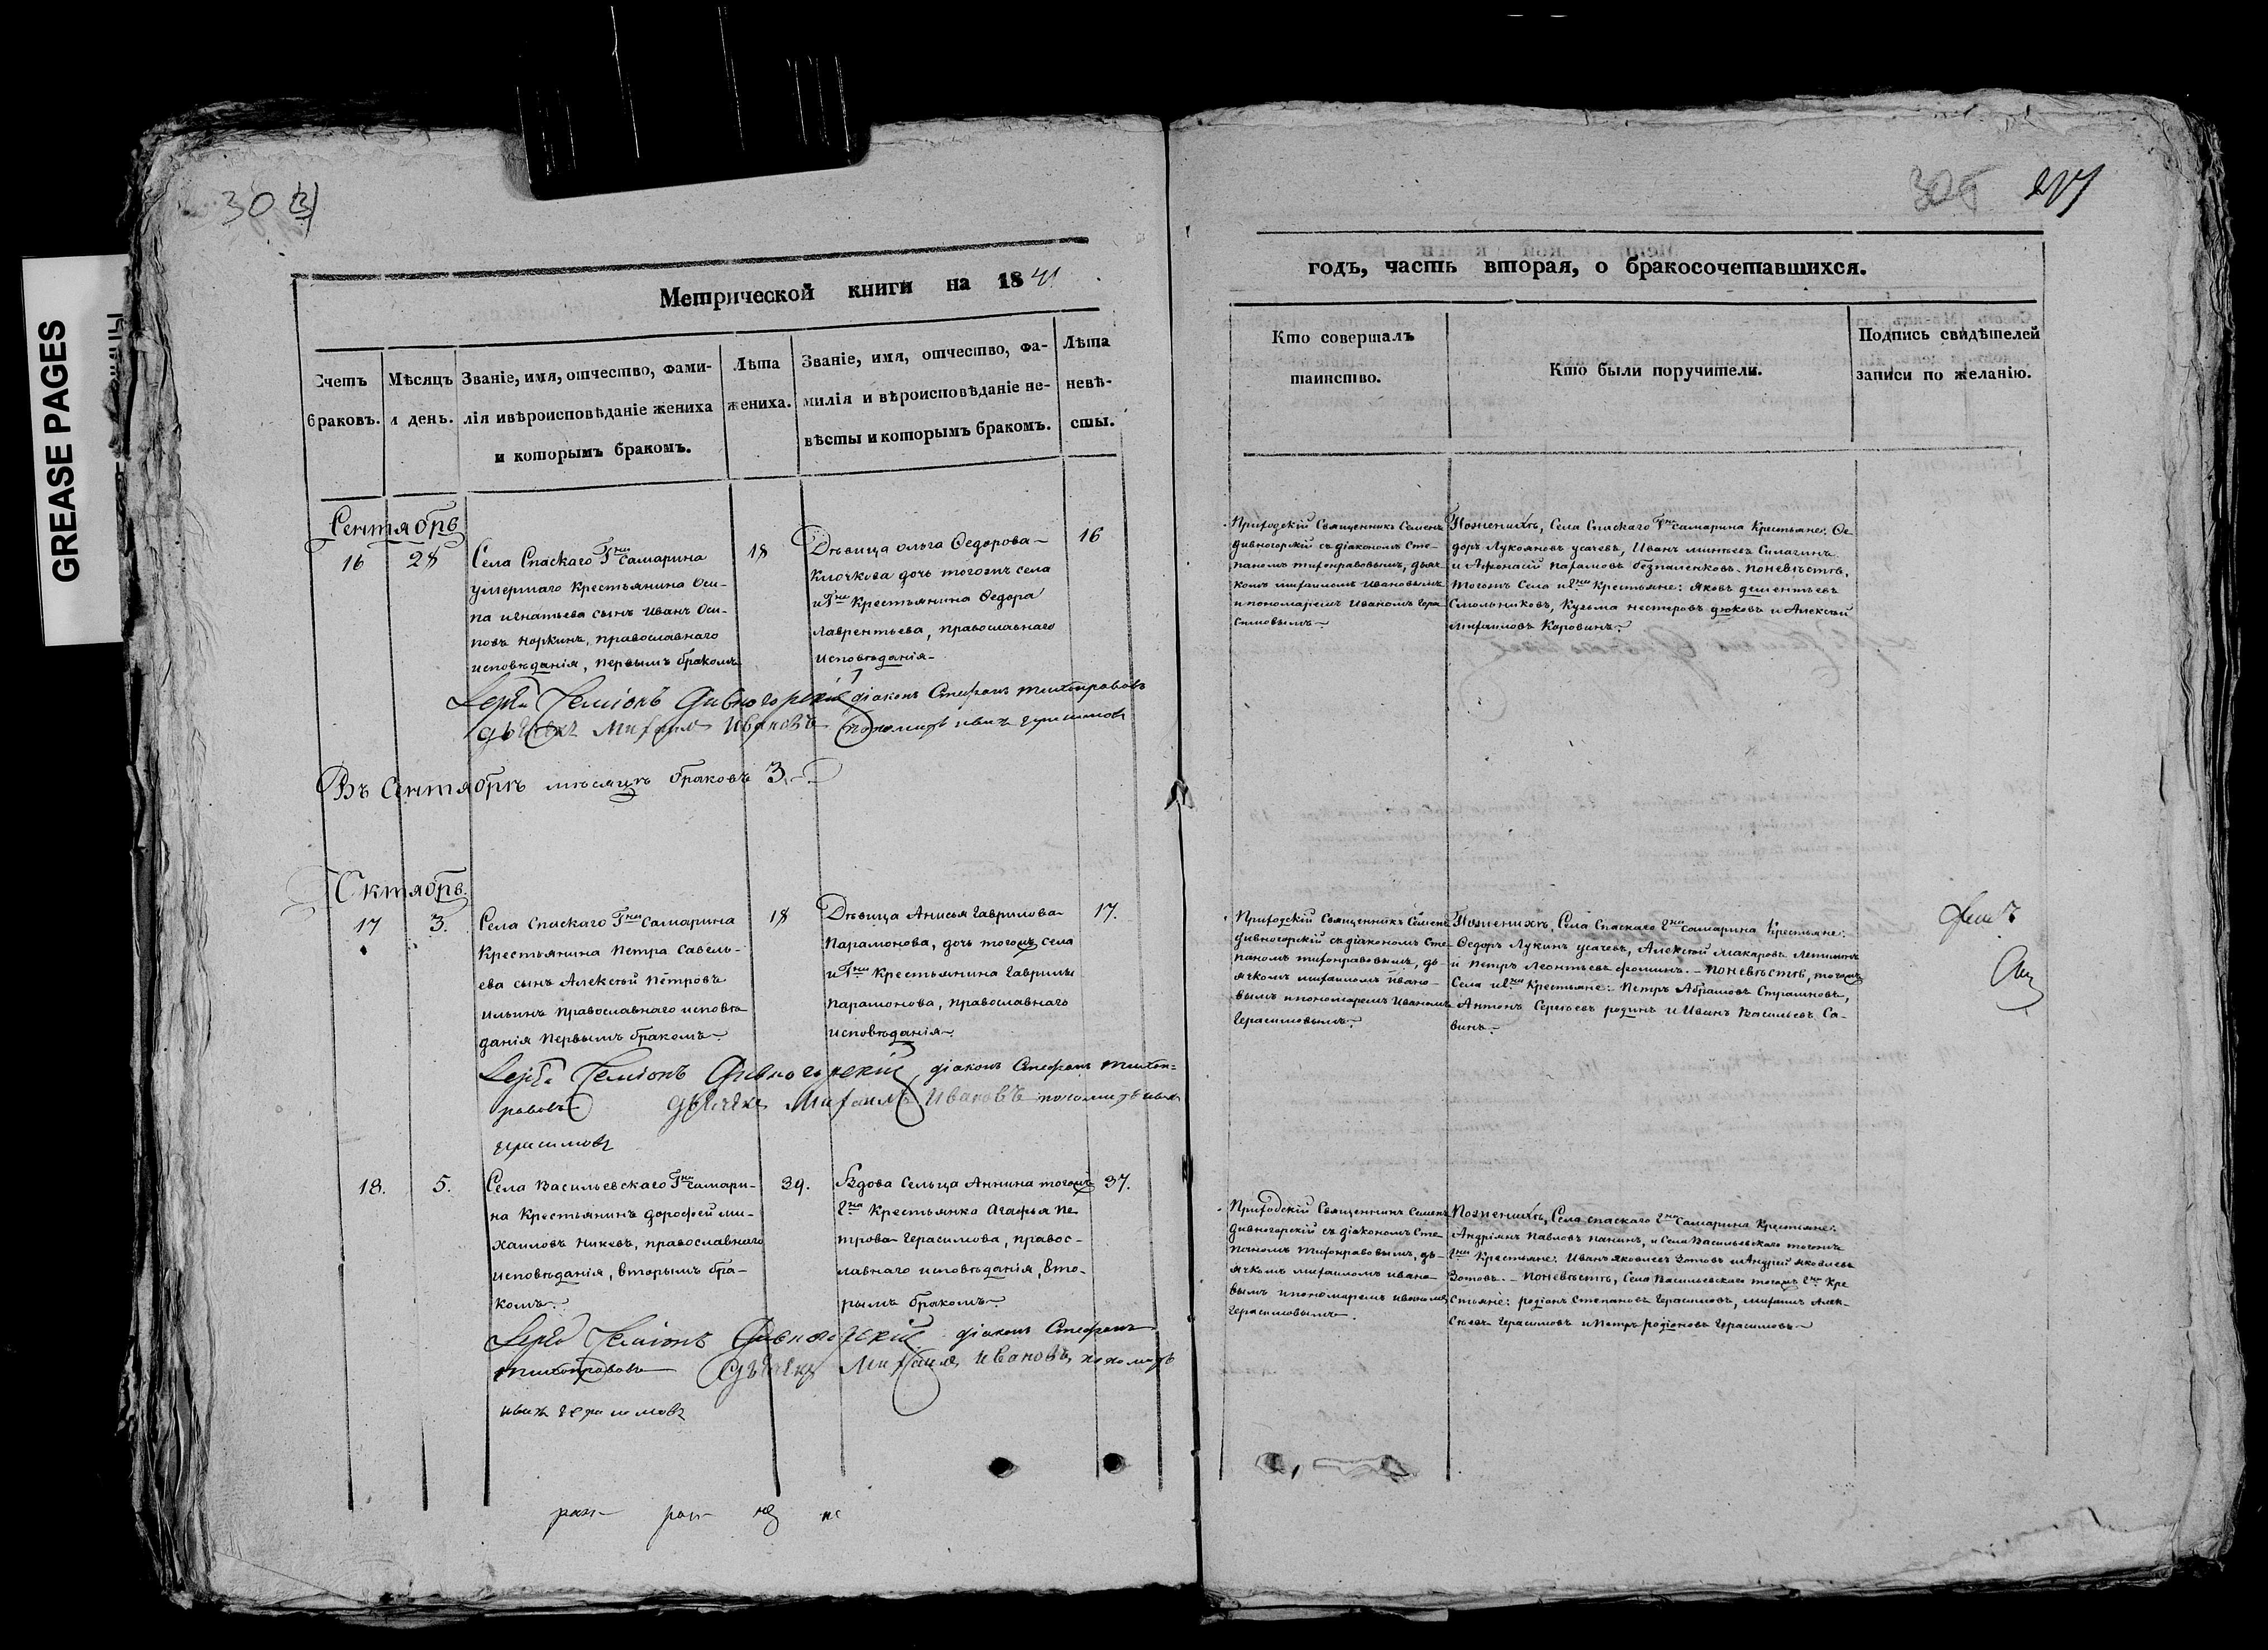 GREASE PAGES
30
305
Метрической книги на 1841
Счетъ браковъ.
Мѣсяцъ и день.
Званіе, имя, отчество, фами-
лія ивѣроисповѣданіе жениха
и которымъ бракомъ.
Лѣта
жениха.
Званіе, имя, отчество, фа-
милія и вѣроисповѣданіе не-
вѣсты и которымъ бракомъ.
Лѣта
невѣ-
сты.
Сентябрь
16
28
Села Спаскаго Гна Самарина
умершаго Крестьянина Оси-
па игнатьева сынъ Иванъ Оси-
повъ Норкинъ, православнаго
исповѣданія, первымъ бракомъ
18
Дѣвица ольга Ѳедорова
Клочкова дочь тогожъ села
и Гна Крестьянина Ѳедора
Лаврентьева, православнаго
исповѣданія
16
Іерей Симіонъ Дивногорскій діаконъ Стефанъ тихонравовъ
дьячекъ Михаилъ Ивановъ пономарь иванъ герасимовъ
Въ Сентябрѣ мѣсяцѣ браковъ 3.
Октябрь.
17
3.
Села Спаскаго Гна Самарина
Крестьянина Петра Савель-
ева сынъ Алексѣй Петровъ
ильинъ православнаго исповѣ
данія первымъ бракомъ.
18
Дѣвица Анисья Гаврилова
Парамонова, дочь тогожъ села
и Гна Крестьянина Гаврилы
Парамонова, православнаго
исповѣданія
17.
Іерей Симіонъ Дивногорскій, діаконъ Стефанъ тихон=
равовъ дьячекъ Михаилъ Ивановъ пономарь иванъ
герасимовъ
18.
5.
Села Васильевскаго Гна Самари-
на Крестьянинъ дорофей ми-
хаиловъ Никевъ, православнаго
исповѣданія, вторымъ бра-
комъ.
39.
Вдова Сельца Аннина тогожъ
Гна Крестьянка Агафья Пе
трова Герасимова, правос-
лавнаго исповѣданія, вто-
рымъ бракомъ.
37.
Іерей Симіонъ Дивногорскій діаконъ Стефанъ
тихонравовъ дьячекъ Михаилъ Ивановъ, пономарь
иванъ герасимовъ
годъ, часть вторая, о бракосочетавшихся.
Кто совершалъ
таинство.
Кто были поручители.
Подпись свидѣтелей
записи по желанію.
Приходскій Священникъ Семенъ
дивногорскій съ діакономъ Сте-
паномъ тихонравовымъ, дьяч-
комъ михаиломъ ивановымъ
и пономаремъ Иваномъ Гера
симовымъ
Поженихѣ, Села Спаскаго Гна Самарина Крестьяне: Ѳе-
доръ Лукояновъ усачевъ, Иванъ минѣевъ Силагинъ
и Афонасій Пахамовъ безпаленковъ. поневѣстѣ,
тогожъ Села и Гна Крестьяне: Яковъ дементьевъ
Смольниковъ, Кузьма нестеровъ дюковъ и Алексѣй
Михаиловъ Коровинъ.
Приходскій Священникъ Семенъ
дивногорскій съ діакономъ Сте-
паномъ тихонравовымъ, дь-
ячкомъ михаиломъ ивано-
вымъ и пономаремъ Иваномъ
Герасимовымъ.
Поженихѣ, Села Спаскаго Гна Самарина Крестьяне:
Ѳедоръ Лукинъ усачевъ, Алексѣй макаровъ
и Петръ Леонтьевъ фоминъ. поневѣстѣ, тогожъ
Села и Гна Крестьяне: Петръ Абрамовъ Страшновъ,
Антонъ Сергѣевъ родинъ и Иванъ Васильевъ Са-
винъ.
Приходскій Священникъ Семенъ
дивногорскій съ діакономъ Сте
паномъ тихонравовымъ, дь-
ячкомъ михаиломъ ивано
вымъ и пономаремъ иваномъ
Герасимовымъ.
Поженихѣ, Села спаскаго Гна Самарина Крестьяне:
Андріянъ Павловъ панинъ, и Села Васильевскаго тогожъ
Гна Крестьяне: Иванъ яковлевъ Зотовъ и Андрей яковлевъ
Зотовъ. поневѣстѣ, Села Васильевскаго тогожъ Гна Кре
стьяне: родіонъ Степановъ Герасимовъ, михаилъ Алек-
сѣевъ Герасимовъ и Петръ родіоновъ Герасимовъ